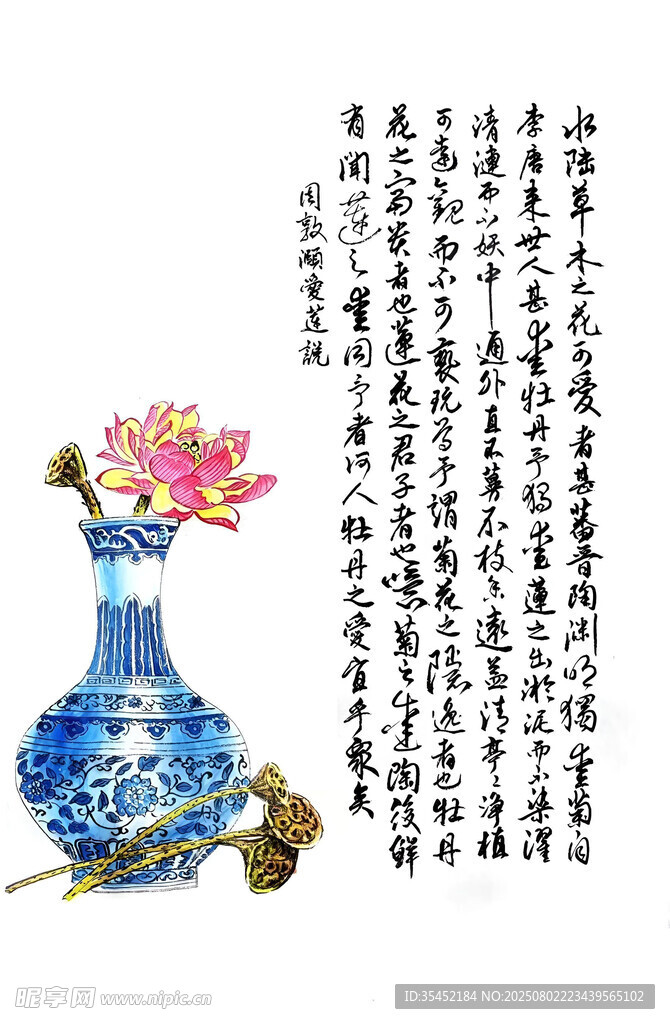 水陆草木之花可爱者甚蕃晋陶渊明独爱菊自
李唐来世人甚爱牡丹予独爱莲之出淤泥而不染濯
清涟而不妖中通外直不蔓不枝香远益清亭亭净植
可远观而不可亵玩焉予謂菊花之隐逸者也牡丹
花之富贵者也蓮花之君子者也噫菊之爱陶後鲜
有闻蓮之爱同予者何人牡丹之愛宜乎衆矣
周敦颐愛莲説
昵享网 www.nipic.cn
ID:35452184 NO:20250802223439565102